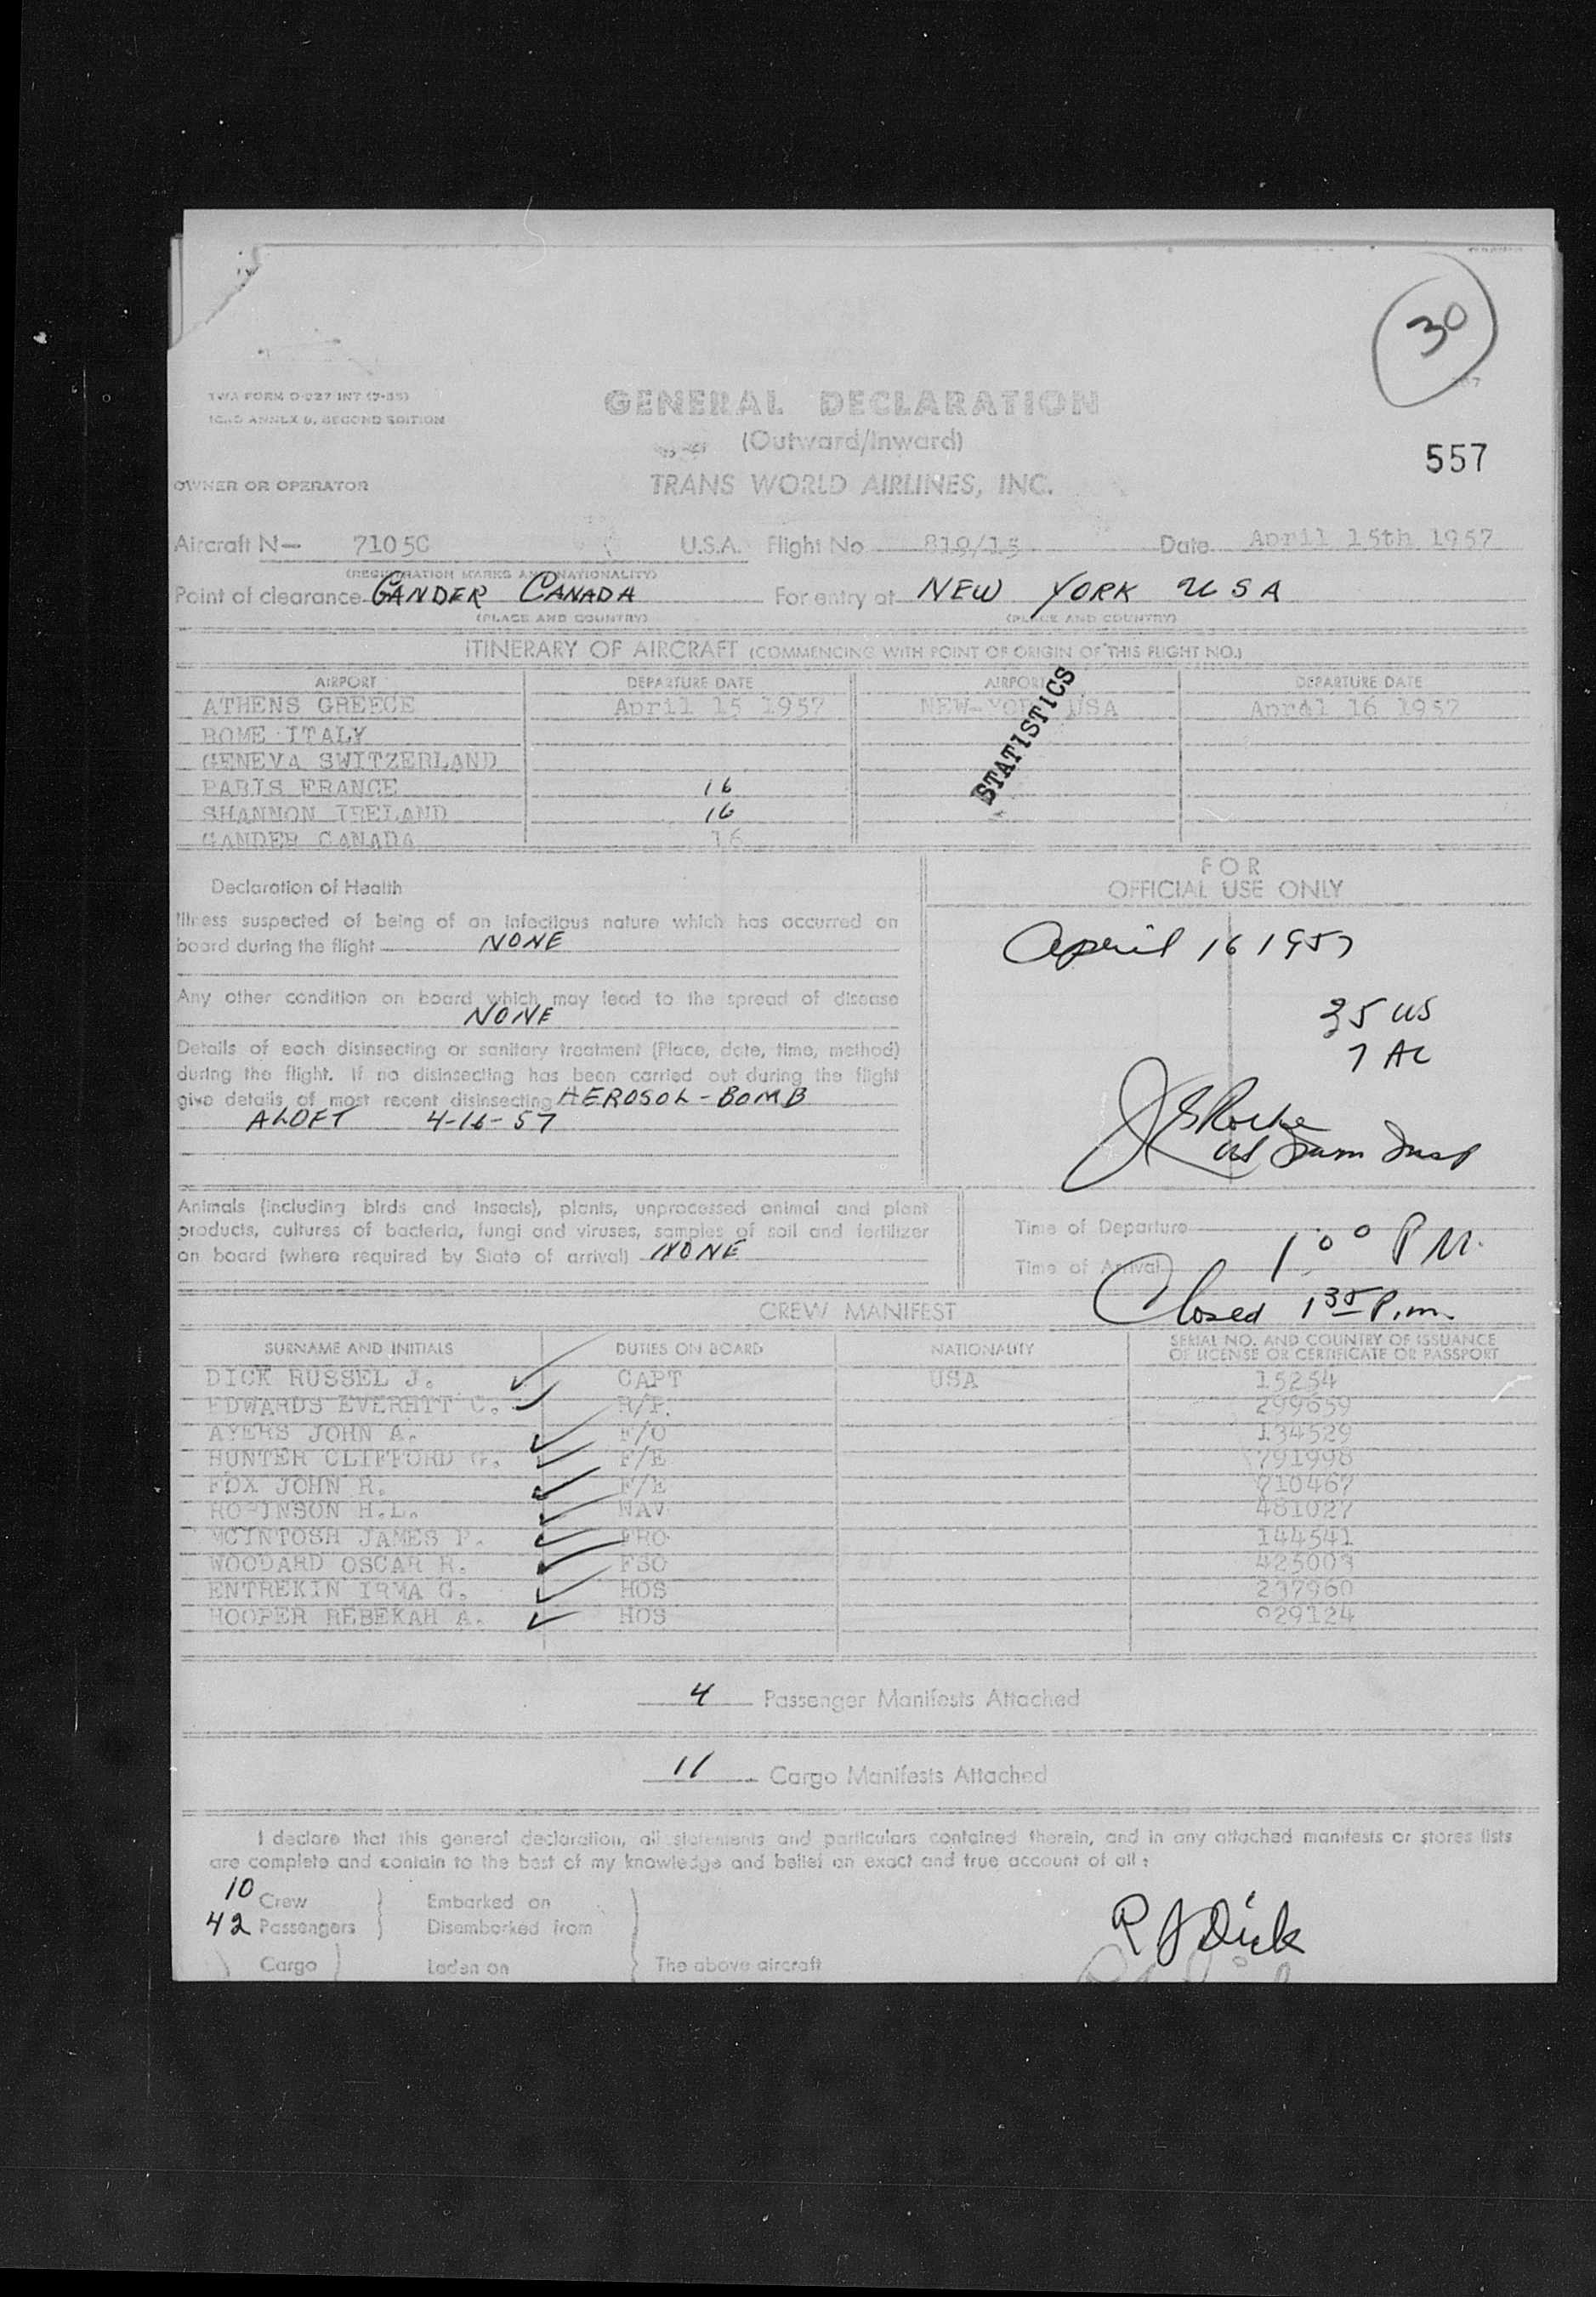 30
TWA FORM O-027 INT (7-55)
ICAO ANNEX 9, SECOND EDITION
GENERAL DECLARATION
(Outward/Inward)
557
OWNER OR OPERATOR
TRANS WORLD AIRLINES, INC.
Aircraft N— 7105C U.S.A. Flight No 819/15 Date April 15th 1957
(REGISTRATION MARKS AND NATIONALITY)
Point of clearance GANDER CANADA For entry at NEW YORK USA
(PLACE AND COUNTRY) (PLACE AND COUNTRY)
ITINERARY OF AIRCRAFT (COMMENCING WITH POINT OF ORIGIN OF THIS FLIGHT NO.)
AIRPORT DEPARTURE DATE AIRPORT DEPARTURE DATE
ATHENS GREECE April 15 1957 NEW-YORK USA April 16 1957
ROME ITALY
GENEVA SWITZERLAND
PARIS FRANCE 16
SHANNON IRELAND 16
GANDER CANADA 16
STATISTICS
Declaration of Health
Illness suspected of being of an infectious nature which has occurred on
board during the flight NONE
Any other condition on board which may lead to the spread of disease
NONE
Details of each disinsecting or sanitary treatment (Place, date, time, method)
during the flight. If no disinsecting has been carried out during the flight
give details of most recent disinsecting AEROSOL-BOMB
ALOFT 4-16-57
FOR
OFFICIAL USE ONLY
April 16 1957
35 US
7 AC
Animals (including birds and insects), plants, unprocessed animal and plant
products, cultures of bacteria, fungi and viruses, samples of soil and fertilizer
on board (where required by State of arrival) NONE
Time of Departure
Time of Arrival 1:00 PM.
Closed 1 35 P.m.
CREW MANIFEST
SURNAME AND INITIALS DUTIES ON BOARD NATIONALITY SERIAL NO. AND COUNTRY OF ISSUANCE
OF LICENSE OR CERTIFICATE OR PASSPORT
DICK RUSSEL J. CAPT USA 15254
EDWARDS EVERHTT C. R/P. 299659
AYERS JOHN A. F/O 134529
HUNTER CLIFFORD G. F/E 791998
FOX JOHN R. F/E 710467
ROBINSON H.L. NAV 481027
MCINTOSH JAMES P. FRO 144541
WOODARD OSCAR R. FSO 425003
ENTREKIN IRMA G. HOS 237960
HOOPER REBEKAH A. HOS 029124
4 Passenger Manifests Attached
11 Cargo Manifests Attached
I declare that this general declaration, all statements and particulars contained therein, and in any attached manifests or stores lists
are complete and contain to the best of my knowledge and belief an exact and true account of all :
10 Crew } Embarked on
42 Passengers } Disembarked from
Cargo } Laden on } The above aircraft
R J Dick